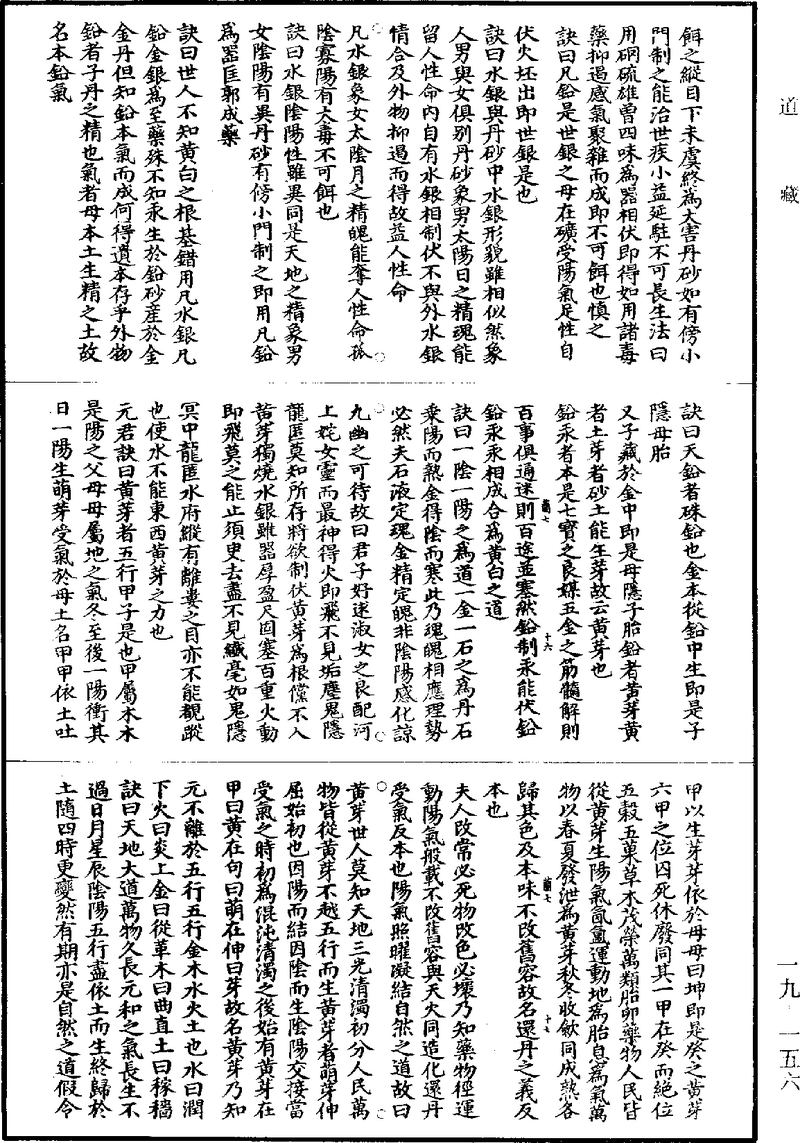 道藏
餌之縱目下未虞終為大害丹砂如有傍小
門制之能治世疾小益延駐不可長生法曰
用硇硫雄曾四味為器相伏即得如用諸毒
藥抑遏感氣聚雜而成即不可餌也慎之
訣曰凡鉛是世銀之母在礦受陽氣足性自
伏火坯出即世銀是也
訣曰水銀與丹砂中水銀形貌雖相似然象
人男與女俱別丹砂象男太陽日之精魂能
留人性命內自有水銀相制伏不與外水銀
情合及外物抑遏而得故益人性命
凡水銀象女太陰月之精魄能奪人性命孤
陰寡陽有大毒不可餌也
訣曰水銀陰陽性雖異同是天地之精象男
女陰陽有異丹砂有傍小門制之即用凡鉛
為器匡郭成藥
訣曰世人不知黃白之根基錯用凡水銀凡
鉛金銀為至藥殊不知汞生於鉛砂產於金
金丹但知鉛本氣而成何得遺本存乎外物
鉛者子丹之精也氣者母本土生精之土故
名本鉛氣
訣曰天鉛者硃鉛也金本從鉛中生即是子
隱母胎
又子藏於金中即是母隱子胎鉛者黃芽黃
者土芽者砂土能生芽故云黃芽也
鉛汞者本是七寶之良媒五金之筋髓解則
百事俱通迷則百途並塞然鉛制汞能伏鉛
蘭七
十六
鉛汞汞相成合為黃白之道
訣曰一陰一陽之為道一金一石之為丹石
乘陽而熱金得陰而寒此乃魂魄相應理勢
必然夫石液定魂金精定魄非陰陽感化諒
九幽之可待故曰君子好逑淑女之良配河
上姹女靈而最神得火即飛不見垢塵鬼隱
龍匿莫知所存將欲制伏黃芽為根儻不入
黃芽獨燒水銀雖器厚盈尺固塞百重火動
即飛莫之能止須臾去盡不見纖毫如鬼隱
冥中龍匿水府縱有離婁之目亦不能覩蹤
也使水不能東西黃芽之力也
元君訣曰黃芽者五行甲子是也甲屬木木
是陽之父母母屬地之氣冬至後一陽衝其
日一陽生萌芽受氣於母土名甲甲依土吐
甲以生芽芽依於母母曰坤即是癸之黃芽
六甲之位囚死休廢同其一甲在癸而絕位
五穀五菓草木茂榮萬類胎卵藥物人民皆
從黃芽生陽氣氤氳運動地為胎息為氣萬
物以春夏發泄為黃芽秋冬收歛同成熟各
歸其色及本味不改舊容故名還丹之義反
蘭七
十七
本也
夫人改常必死物改色必壞乃知藥物徑運
動陽氣般載不改舊容與天火同造化還丹
受氣反本也陽氣照曜凝結自然之道故曰
黃芽世人莫知天地三光清濁初分人民萬
物皆從黃芽不越五行而生黃芽者萌芽伸
屈始初也因陽而結因陰而生陰陽交接當
受氣之時初為混沌清濁之後始有黃芽在
甲曰黃在句曰萌在伸曰芽故名黃芽乃知
元不離於五行五行金木水火土也水曰潤
下火曰炎上金曰從革木曰曲直土曰稼穡
訣曰天地大道萬物久長元和之氣長生不
過日月星辰陰陽五行盡依土而生終歸於
土隨四時更變然有期亦是自然之道假令
一九·一五六